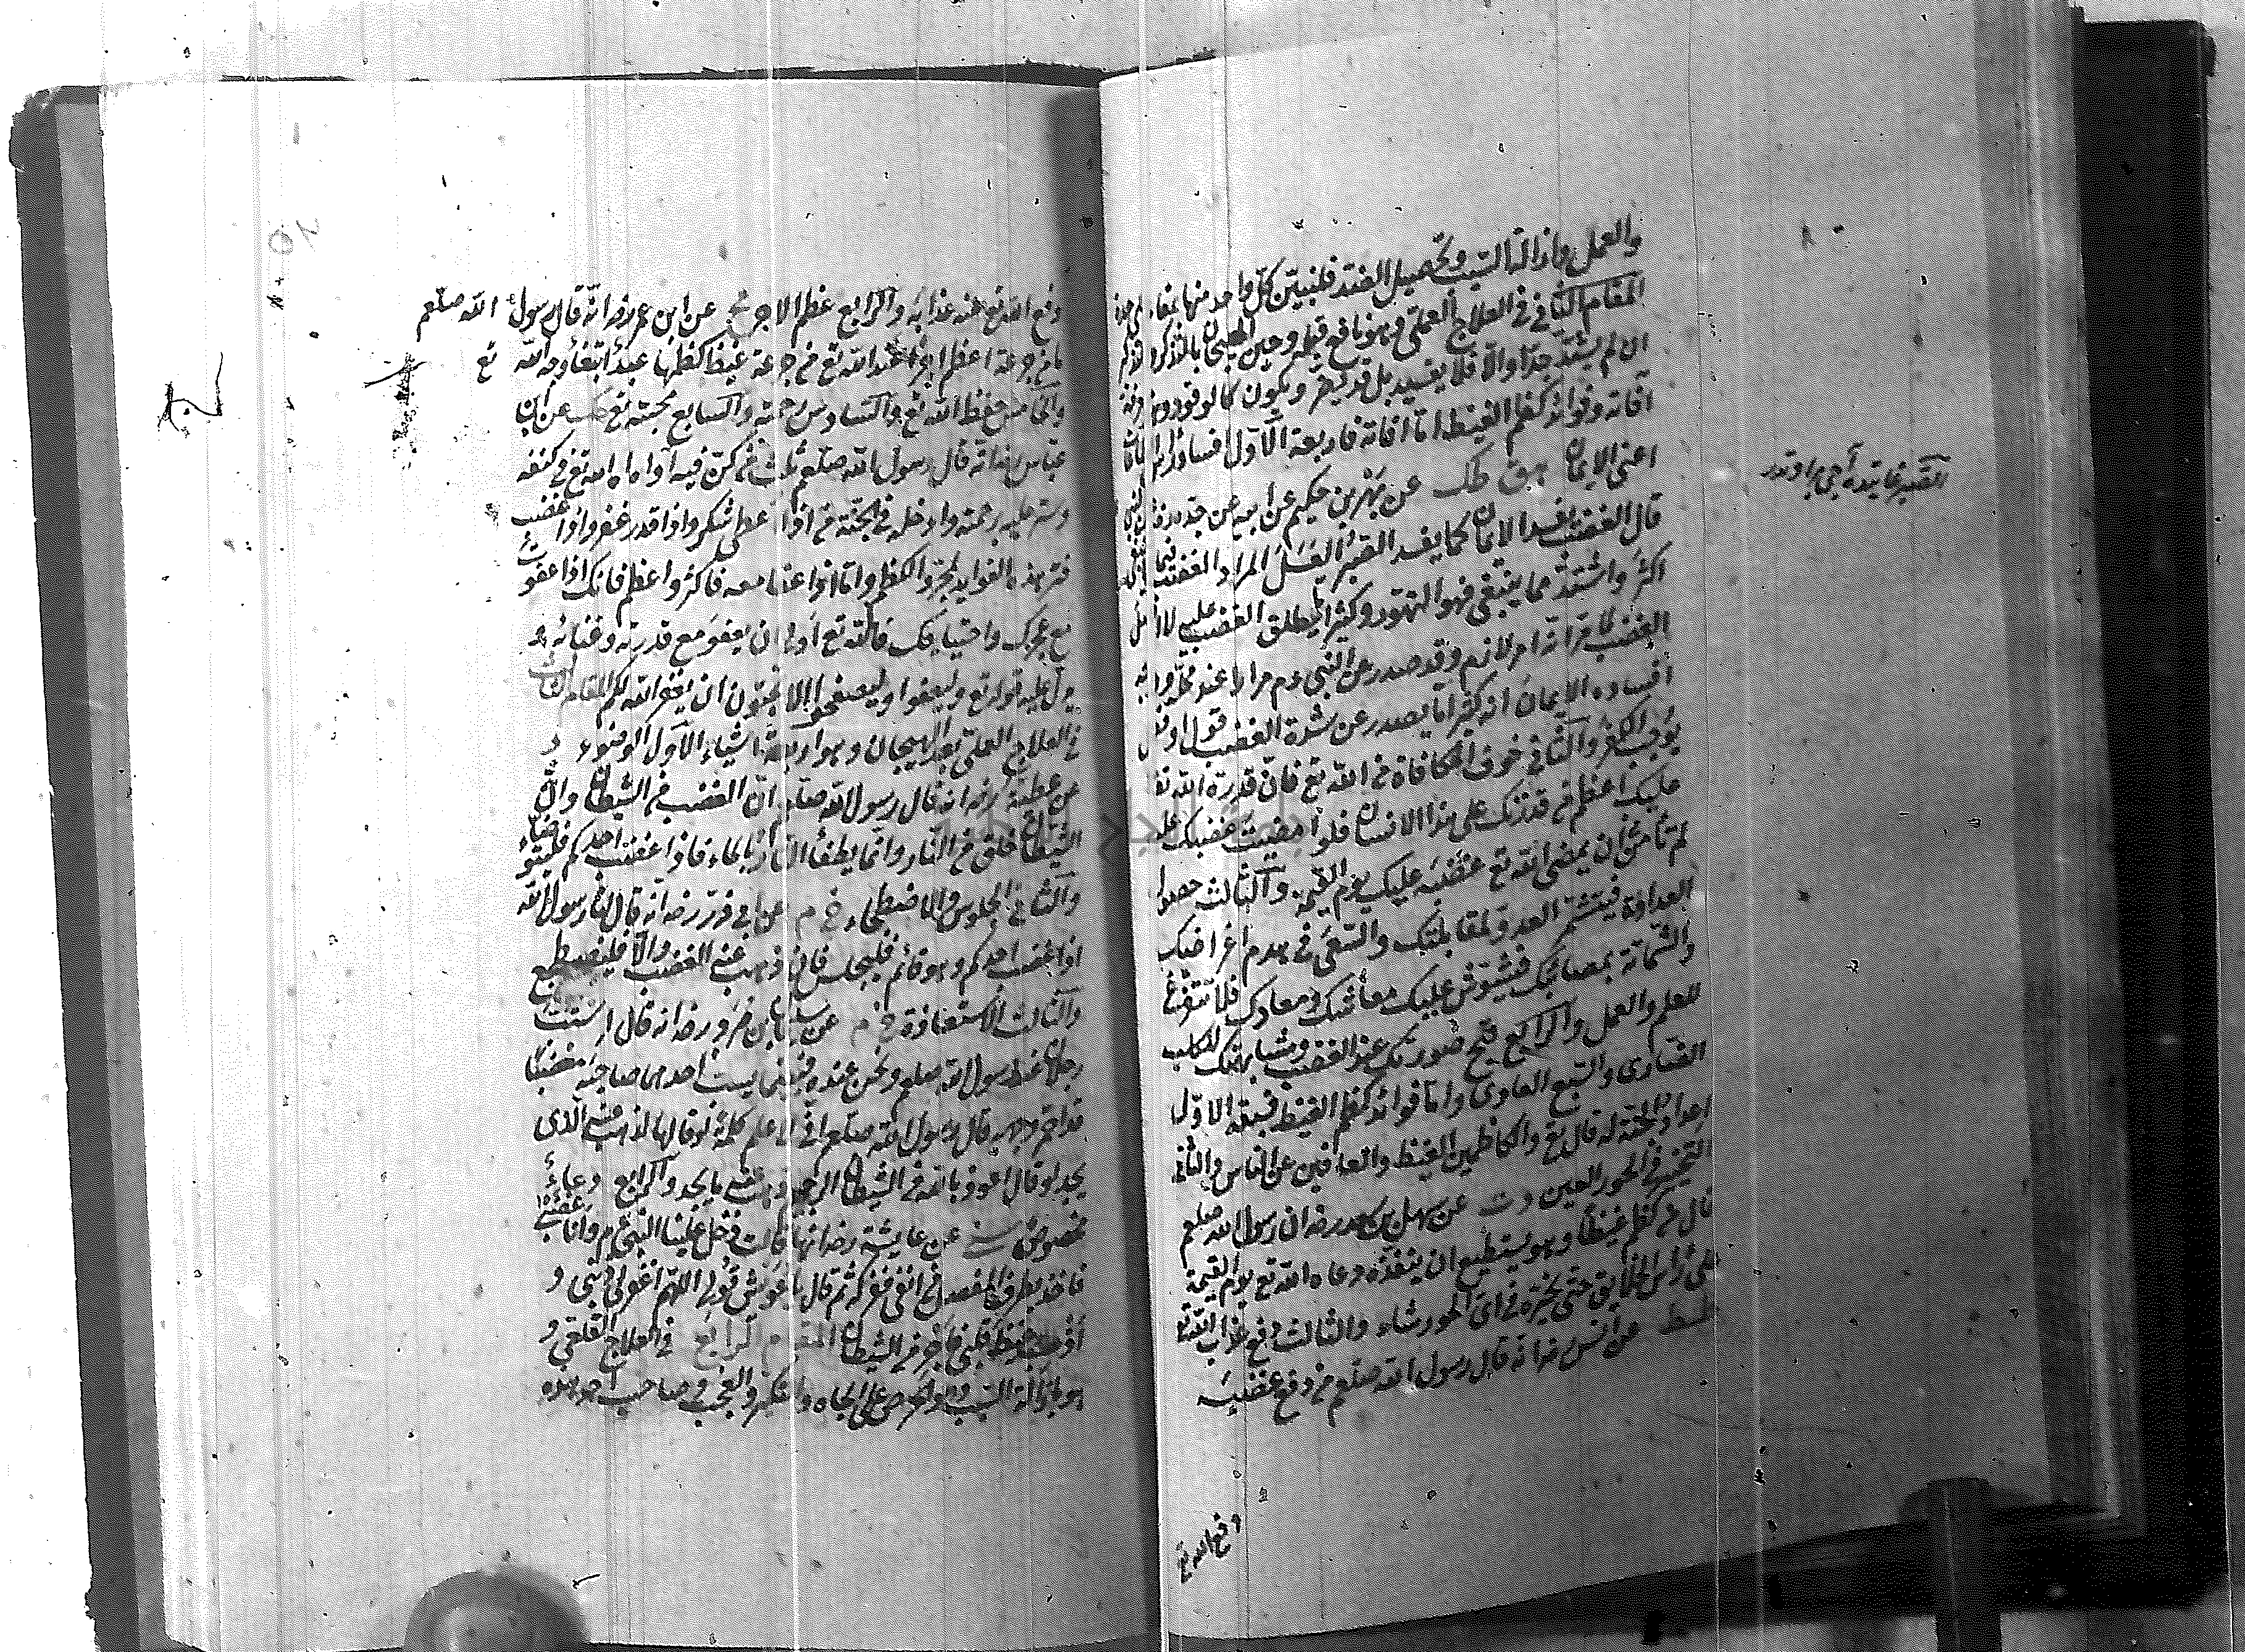 والعمل وازالة السبب وتحصيل الضد فلنبين كل واحد منها بمقام على حدة
المقام الثاني في العلاج العلمي وهو نافع قبله وحين الهيجان بالتذكر
ان لم يشتد جدا والا فلا يفيد بل قد يضر ويكون كالوقود
آفاته وفوائد كظم الغيظ اما آفاته فاربعة الاول افساد رأس الطاعات
اعني الايمان هق طك عن بهز بن حكيم عن ابيه عن جده
قال الغضب يفسد الايمان كما يفسد الصبر العسل المراد الغضب فيما
اكثر واشتد مما ينبغي فهو التهور وكثيرا ما يطلق الغضب عليه لا اصل
الغضب لما مر انه امر لازم وقد صدر عن النبي عم مرارا عند محله ووجه
افساده الايمان انه كثيرا ما يصدر عن شدة الغضب قول او فعل
يوجب الكفر والثاني خوف المكافاة من الله تع فان قدرة الله تع
عليك اعظم من قدرتك على هذا الانسان فلو امضيت غضبك عليه
لم تأمن ان يمضي الله تع غضبه عليك يوم القيمة والثالث حصول
العداوة فيتشمر العدو لمقابلتك والسعي في هدم اغراضك
والشماتة بمصائبك فيشوش عليك معاشك ومعادك فلا تتفرغ
للعلم والعمل والرابع قبح صورتك عند الغضب ومشابهتك للكلب
الضاري والسبع العادي واما فوائد كظم الغيظ فسبعة الاول
اعداد الجنة له قال تع والكاظمين الغيظ والعافين عن الناس والثاني
التخيير في الحور العين د ت عن سهل بن سعد رضه ان رسول الله صلعم
قال من كظم غيظا وهو يستطيع ان ينفذه دعاه الله تع يوم القيمة
على رأس الخلائق حتى يخيره في اي الحور شاء والثالث دفع عذاب الله تع
طط عن انس رضه انه قال رسول الله صلعم من دفع غضبه
دفع الله تع
دفع الله تع عنه عذابه والرابع عظم الاجر مج عن ابن عمر رضه انه قال رسول الله صلعم
ما من جرعة اعظم اجرا عند الله تع من جرعة غيظ كظمها عبد ابتغاء وجه الله تع
والخامس حفظ الله تع والسادس رحمته والسابع محبته تع حك عن ابن
عباس رضه انه قال رسول الله صلعم ثلث من كن فيه آواه الله تع في كنفه
وستر عليه برحمته وادخله في محبته من اذا اعطى شكر واذا قدر غفر واذا غضب
فتر هذه الفوائد لمجرد الكظم واما اذا عفا معه فاكثر واعظم فانك اذا عفوت
مع عجزك واحتياجك فالله تع اولى ان يعفو مع قدرته وغنائه و
يدل عليه قوله تع وليعفوا وليصفحوا الا تحبون ان يغفر الله لكم المقام الثالث
في العلاج العملي بعد الهيجان وهو اربعة اشياء الاول الوضوء د
عن عطية رضه انه قال رسول الله صلعم ان الغضب من الشيطان وان
الشيطان خلق من النار وانما يطفأ النار بالماء فاذا غضب احدكم فليتوضأ
والثاني الجلوس والاضطجاع خ م عن ابي ذر رضه انه قال لنا رسول الله
اذا غضب احدكم وهو قائم فليجلس فان ذهب عنه الغضب والا فليضطجع
والثالث الاستعاذة خ م عن سليمان بن صرد رضه انه قال استب
رجلان عند رسول الله صلعم ونحن عنده فبينما يسب احدهما صاحبه مغضبا
قد احمر وجهه قال رسول الله صلعم اني لاعلم كلمة لو قالها لذهب عنه الذي
يجد لو قال اعوذ بالله من الشيطان الرجيم ذهب عنه ما يجد والرابع دعاء
مخصوص سني عن عايشة رضه انها قالت دخل علينا النبي عم وانا غضبى
فاخذ بطرف المفصل من انفي ففركه ثم قال يا عويش قولي اللهم اغفر لي ذنبي و
اذهب غيظ قلبي فاجرني من الشيطان المقام الرابع في العلاج القلعي و
هو بازالة السبب وهو الحرص على الجاه والتكبر والعجب وصاحب احد هذه